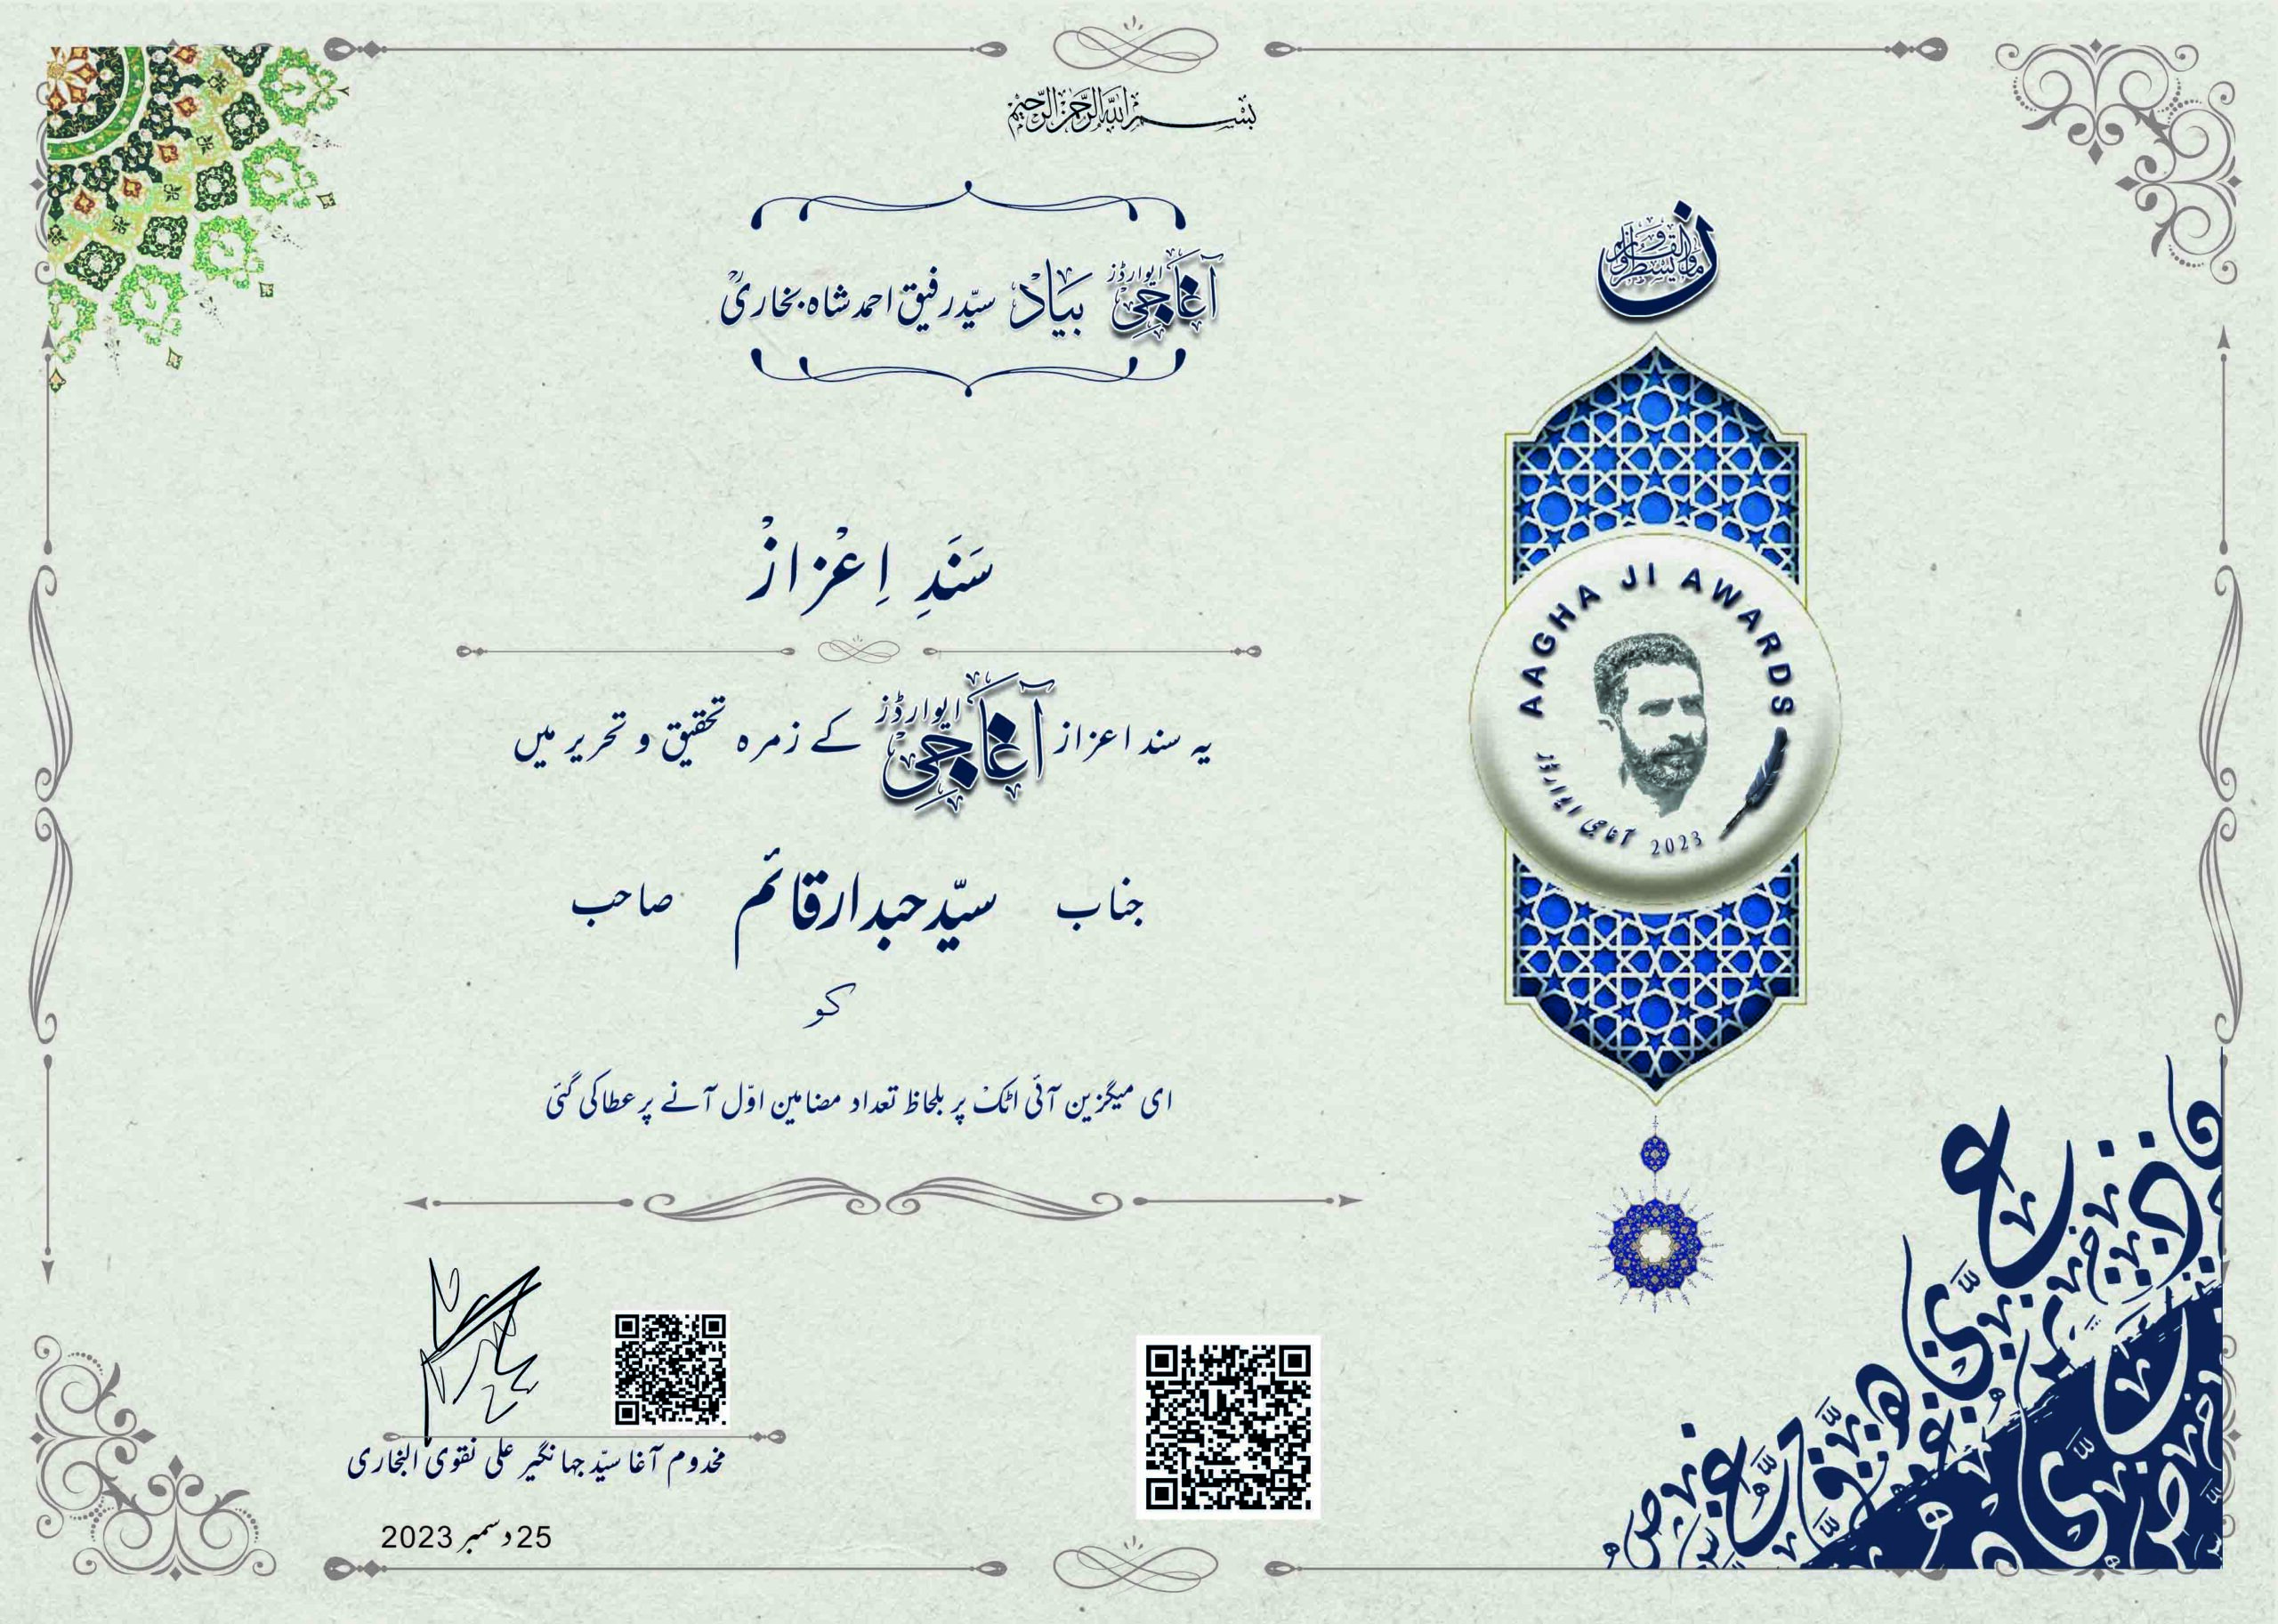 بسم الله الرحمن الرحيم
آغا جی ایوارڈز بیاد سیّد رفیق احمد شاہ بخاریؒ
ن والقلم وما يسطرون
سَنَدِ اِعْزازْ
یہ سند اعزاز آغا جی ایوارڈز کے زمرہ تحقیق و تحریر میں
جناب سیّد حبدار قائم صاحب
کو
ای میگزین آئی اٹک پر بلحاظ تعداد مضامین اوّل آنے پر عطا کی گئی
AAGHA JI AWARDS
آغا جی ایوارڈز 2023
مخدوم آغا سیّد جہانگیر علی نقوی البخاری
25 دسمبر 2023